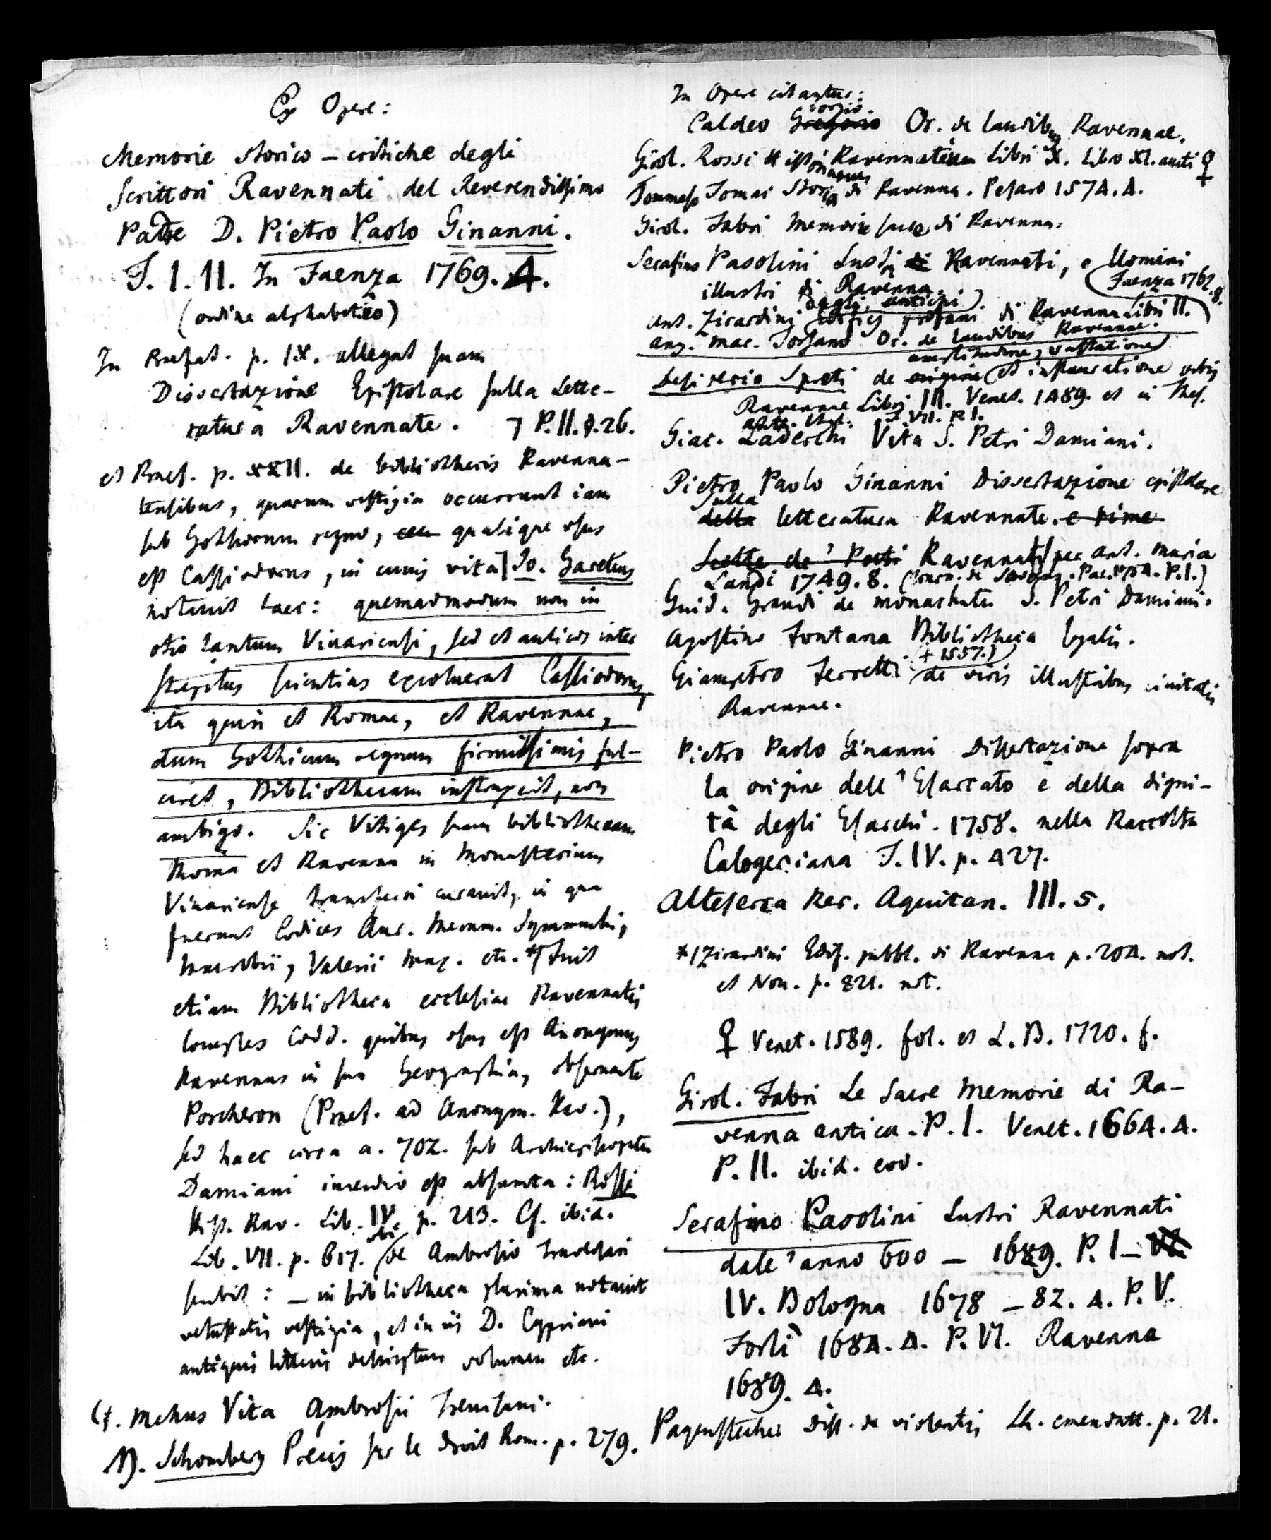 Ex Opere:
Memorie storico-critiche degli
Scrittori Ravennati del Reverendissimo
Padre D. Pietro Paolo Ginanni.
T. I. II. In Faenza 1769. 4.
(ordine alphabetico)
In Praefat. p. IX. allegat suam
Dissertazione Epistolare sulla Lette-
ratura Ravennate. P. II. p. 26.
et Praef. p. XXII. de bibliothecis Ravenna-
tensibus, quarum vestigia occurrunt iam
sub Gothorum regno, qualique usus
est Cassiodorus, in cuius vita Jo. Garetus
notavit haec: quemadmodum non in
otio tantum Vivariensi, sed et aulicos inter
strepitus scientias excoluerat Cassiodorus,
ita quin et Romae, et Ravennae,
dum Gothicum regnum firmissimis ful-
ciret, Bibliothecam instruxerit, non
ambigo. Sic Vitiges suam bibliothecam
Roma et Ravenna in Monasterium
Vivariense transferri curavit, in qua
fuerunt Codices Aur. Memm. Symmachi,
Macrobii, Valerii Max. etc. *) Fuit
etiam Bibliotheca ecclesiae Ravennatis
complex Codd. quibus usus est Anonymus
Ravennas in sua Geographia, observante
Porcheron (Praef. ad Anonym. Rav.),
sed haec circa a. 702. sub Archiepiscopatu
Damiani incendio est absumta: Rossi
Hist. Rav. Lib. IV. p. 213. Cf. ibid.
Lib. VII. p. 617. ubi de Ambrosio Traversari
scribit: — in bibliotheca plurima notavit
vetustatis vestigia, et in iis D. Cypriani
antiquis litteris descriptum volumen etc.
Cf. Mehus Vita Ambrosii Traversari.
N. Schomberg Precis sur le droit Rom. p. 279.
In Opere citantur:
Caldeo Gregorio Or. de laudibus Ravennae.
Girol. Rossi Historiarum Ravennatum Libri X. Libro XI. aucti ♀
Tommaso Tomai Storia di Ravenna. Pesaro 1574. 4.
Girol. Fabri Memorie sacre di Ravenna.
Serafino Pasolini Lustri Ravennati, e Uomini
illustri di Ravenna
Faenza 1762. 8.
Ant. Zirardini degli antichi edifizj profani di Ravenna libri II.
Or. de laudibus Ravennae.
Desiderio Spreti de amplitudine, vastatione et instauratione urbis
Ravennae Libri III. Venet. 1489. et in Thes.
Ant. Ital. T. VII. P. I.
Giac. Laderchi Vita S. Petri Damiani.
Pietro Paolo Ginanni Dissertazione epistolare
sulla
della letteratura Ravennate. e rime
Scelte de' Poeti Ravennati per Ant. Maria
Landi 1749. 8.
Guid. Grandi de monachatu S. Petri Damiani.
Agostino Fontana Bibliotheca legalis.
Giampetro Ferretti (+ 1557.) de viris illustribus civitatis
Ravennae.
Pietro Paolo Ginanni Dissertazione sopra
la origine dell' Esarcato e della digni-
tà degli Esarchi. 1758. nella Raccolta
Calogeriana T. IV. p. 427.
Alteserra Rer. Aquitan. III. 5.
*) Zirardini Edif. pubbl. di Ravenna p. 204. not.
et Non. p. 821. not.
♀ Venet. 1589. fol. et L. B. 1720. f.
Girol. Fabri Le Sacre Memorie di Ra-
venna antica. P. I. Venet. 1664. 4.
P. II. ibid. eod.
Serafino Pasolini Lustri Ravennati
dale' anno 600 — 1689. P. I —
IV. Bologna 1678 — 82. 4. P. V.
Forlì 1684. 4. P. VI. Ravenna
1689. 4.
Pagenstecher Diss. de violentis LL. emendatt. p. 21.